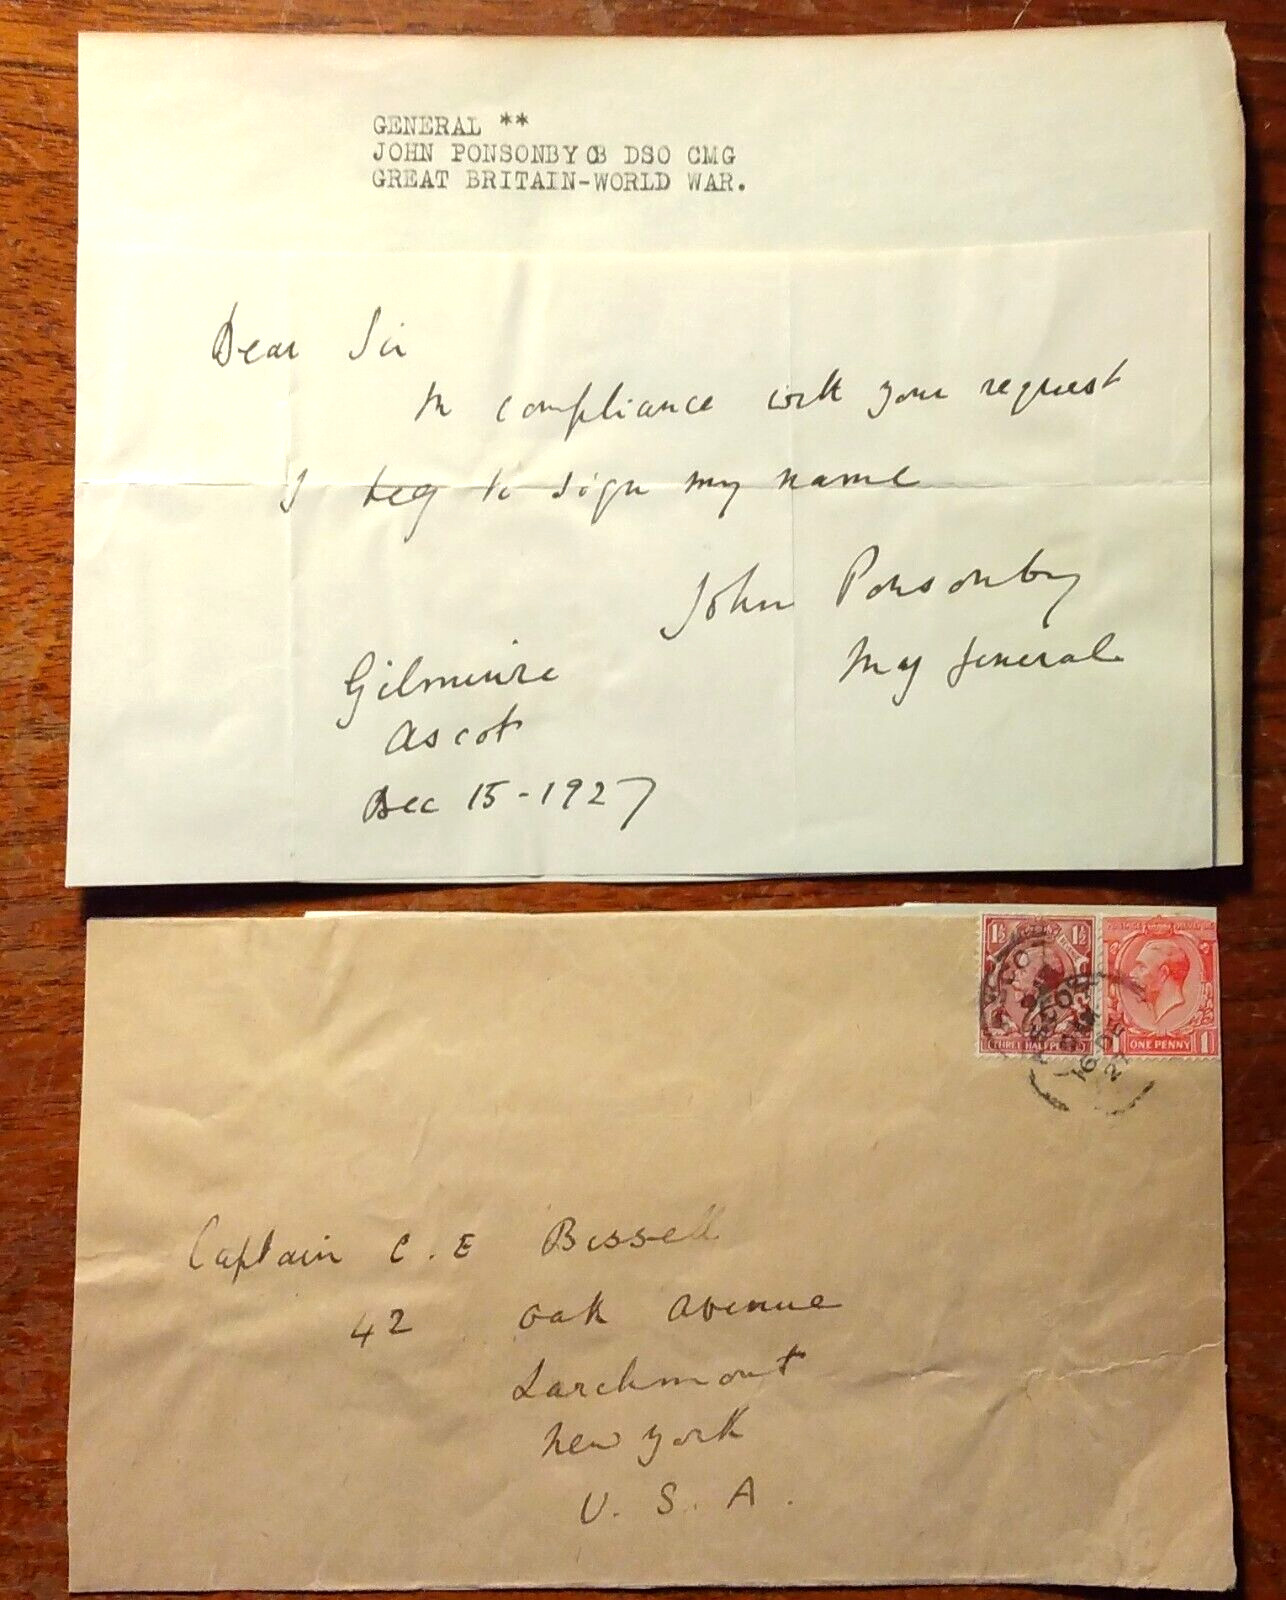 GENERAL **
JOHN PONSONBY CB DSO CMG
GREAT BRITAIN-WORLD WAR.
Dear Sir
In compliance with your request
I beg to sign my name
John Ponsonby
Maj General
Gilmuire
Ascot
Dec 15-1927
1½ 1½
THREE HALFPENCE
1 ONE PENNY 1
ASCOT
16 DE
27
Captain C. E Bissell
42 Oak Avenue
Larchmont
New York
U. S. A.